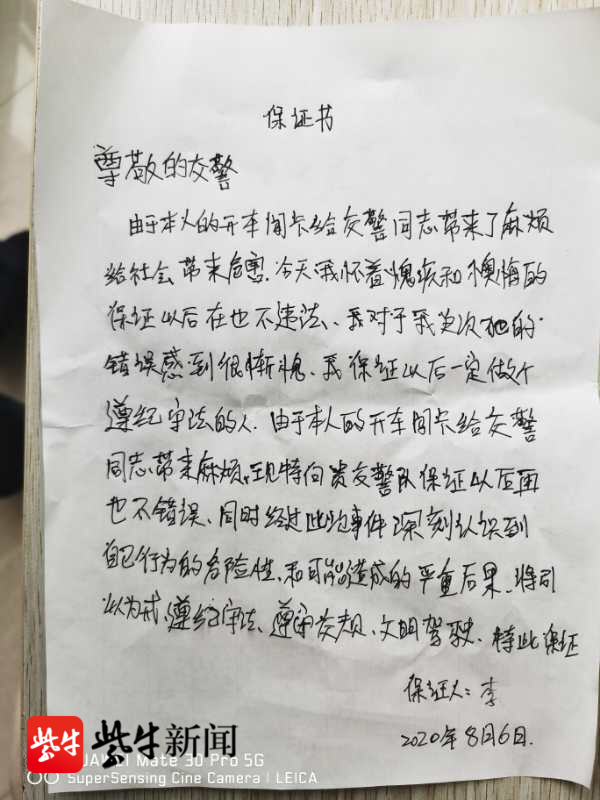 保证书
尊敬的交警
由于本人的开车闯卡给交警同志带来了麻烦
给社会带来危害.今天我怀着愧疚和懊悔的
保证以后在也不违法、我对于我次犯的
错误感到很惭愧、我保证以后一定做个
遵纪守法的人.由于本人的开车闯卡给交警
同志带来麻烦.现特向贵交警队保证以后再
也不错误、同时经过此次事件深刻认识到
自己行为的危险性、和可能造成的严重后果、将引
以为戒、遵纪守法、遵守交规、文明驾驶、特此保证
保证人:李
2020年8月6日.
紫牛新闻
AWEI Mate 30 Pro 5G
SuperSensing Cine Camera | LEICA